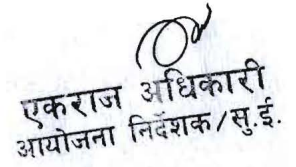 एकराज अधिकारी
आयोजना निर्देशक/सु.ई.